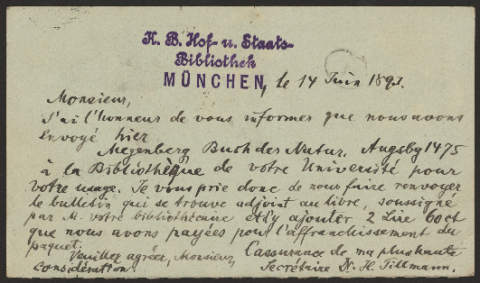 K. B. Hof- u. Staats-
Bibliothek
MÜNCHEN, le 14 Juin 1893.
Monsieur,
J'ai l'honneur de vous informer que nous avons
envoyé hier
Megenberg Buch der Natur. Augsbg 1475
à la Bibliothèque de votre Université pour
votre usage. Je vous prie donc de nous faire renvoyer
le bulletin qui se trouve adjoint au livre, soussigné
par M. votre bibliothécaire et d'y ajouter 2 Lire 60 ct
que nous avons payées pour l'affranchissement du
paquet.
Veuillez agréer, Monsieur, l'assurance de ma plus haute
considération.
Secrétaire Dr. H. Tillmann.